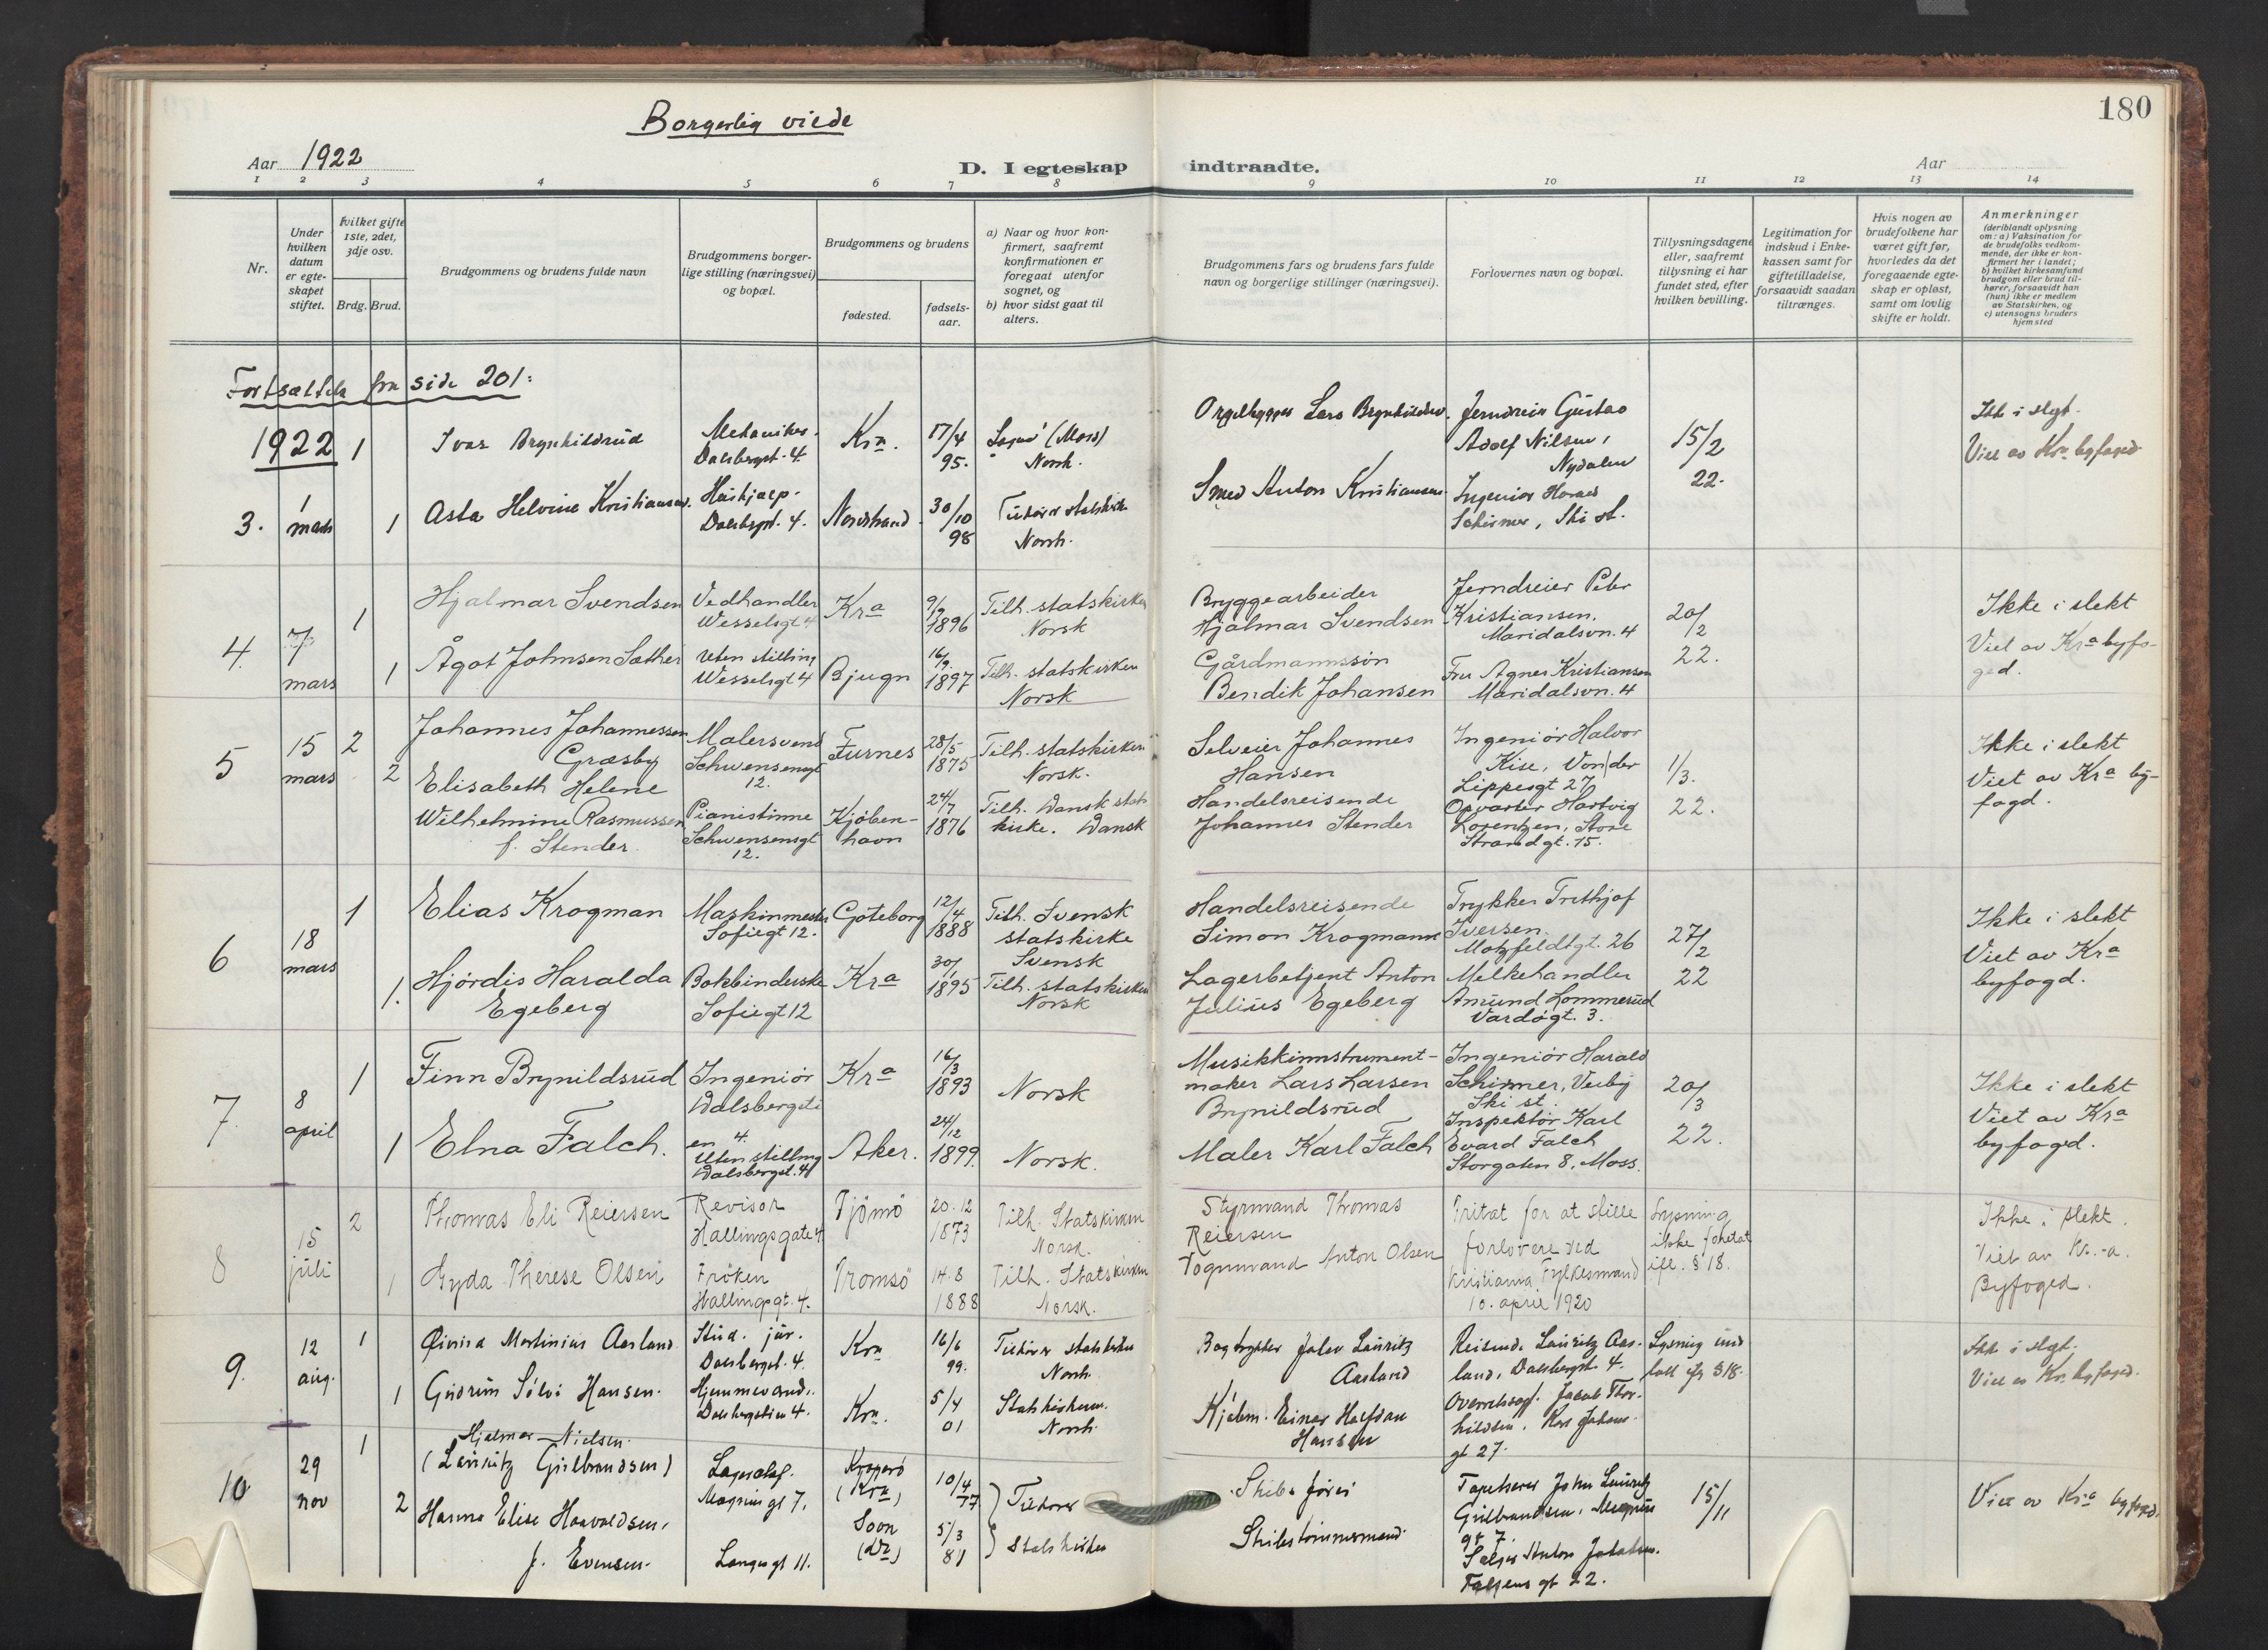 180
Borgerlig viede
Aar 1922
D. I egteskap indtraadte.
Aar
1 2 3 4 5 6 7 8 9 10 11 12 13 14
Nr.
Under hvilken datum er egteskapet stiftet.
Hvilket gifte 1ste, 2det, 3dje osv.
Brdg. Brud.
Brudgommens og brudens fulde navn
Brudgommens borgerlige stilling (næringsvei) og bopæl.
Brudgommens og brudens
fødested.
fødselsaar.
a) Naar og hvor konfirmert, saafremt konfirmationen er foregaat utenfor sognet, og
b) hvor sidst gaat til alters.
Brudgommens fars og brudens fars fulde navn og borgerlige stillinger (næringsvei).
Forlovernes navn og bopæl.
Tillysningsdagene eller, saafremt tillysning ei har fundet sted, efter hvilken bevilling.
Legitimation for indskud i Enkekassen samt for giftetilladelse, forsaavidt saadan tiltrænges.
Hvis nogen av brudefolkene har været gift før, hvorledes da det foregaaende egteskap er opløst, samt om lovlig skifte er holdt.
Anmerkninger (deriblandt oplysning om: a) Vaksination for de brudefolks vedkommende, der ikke er konfirmert her i landet; b) hvilket kirkesamfund brudgom eller brud tilhører, forsaavidt han (hun) ikke er medlem av Statskirken, og c) utensogns bruders hjemsted
Fortsættelse fra side 201:
1922
3. 1 mars
1 Ivar Brynhildsrud
Mekaniker. Dalsbergst. 4.
Kra.
17/4 95.
(Moss) Norsk.
Orgelbygger Lars Brynhildsrud.
Jerndreier Gustav Adolf Nilsen, Nydalen
15/2 22.
Ikke i slegt.
Viet av Kra byfoged
1 Asta Helvine Kristiansen.
Hushjælp. Dalsbgst. 4.
Nordstrand
30/10 98
Tilhører statskirken Norsk.
Smed Anton Kristiansen.
Ingeniør Harald Schirmer, Ski st.
4. 7 mars
1 Hjalmar Svendsen
Vedhandler Wesselsgt 4
Kra
9/9 1896
Tilh. statskirken Norsk
Bryggearbeider Hjalmar Svendsen
Jerndreier Peter Kristiansen. Maridalsvn. 4
20/2 22.
Ikke i slekt
Viet av Kra byfoged.
1 Ågot Johnsen Sæther
Uten stilling Wesselsgt 4
Bjugn
16/9 1897
Tilh. statskirken Norsk
Gårdmannssön Bendik Johansen
Fru Agnes Kristiansen Maridalsvn. 4
5 15 mars
2 Johannes Johannessen Græsby
Malersvend Schwensensgt 12.
Furnes
28/5 1875
Tilh. statskirken Norsk.
Selveier Johannes Hansen
Ingeniör Halvor Kise, Von der Lippesgt 27
1/3. 22.
Ikke i slekt
Viet av Kra byfogd.
2 Elisabeth Helene Wilhelmine Rasmussen f. Stender.
Pianistinne Schwensensgt 12.
Kjöbenhavn
24/7 1876
Tilh. Dansk statskirke. Dansk
Handelsreisende Johannes Stender
Opvarter Hartvig Lorentzen, Store Strandgt. 15.
6 18 mars
1 Elias Krogman
Maskinmester Sofiegt 12.
Göteborg
12/4 1888
Tilh. Svensk statskirke Svensk
Handelsreisende Simon Krogmann
Trykker Frithjof Iversen. Motzfeldtgt. 26
27/2 22
Ikke i slekt
Viet av Kra byfogd.
1. Hjördis Haralda Egeberg
Bokbinderske Sofiegt 12
Kra
30/1 1895
Tilh. statskirken Norsk
Lagerbetjent Anton Julius Egeberg
Melkehandler Amund Lommerud Vardögt. 3.
7. 8 april
1 Finn Brynildsrud
Ingeniör Dalsbergstien 4.
Kra
16/3 1893
Norsk
Musikkinnstrumentmaker Lars Larsen Brynildsrud
Ingeniör Harald Schirmer, Veiby Ski st.
20/3 22.
Ikke i slekt
Viet av Kra byfogd.
1 Elna Falch.
Uten stilling Dalsbergst. 4
Aker.
24/12 1899.
Norsk.
Maler Karl Falch
Inspektör Karl Evard Falch Storgaten 8, Moss.
8 15 juli
2 Thomas Eli Reiersen
Revisor Hallingsgate 4
Tjömö
20.12 1873
Tilh. Statskirken Norsk.
Styrmand Thomas Reiersen
Fritat for at stille forlovere ved Kristiania Fylkesmand 10. april 1920
Lysning ikke foretat ifl. § 18.
Ikke i slekt.
Viet av Kr.-a. Byfoged.
1 Gyda Therese Olsen
Fröken Hallingsgt. 4.
Tromsö
14.8 1888
Tilh. Statskirken Norsk.
Vognmand Anton Olsen
9. 12 aug.
1 Øivind Martinius Aasland
Stud. jur. Dalsbergst. 4.
Kra
16/6 99.
Tilhører statskirken Norsk
Bogtrykker Aasland
Reisende Lauritz Aasland, Dalsbergst. 4.
Lysning undlatt efter § 18.
Ikke i slegt.
Viet av Kr. byfoged.
1 Gudrun Sölvi Hansen.
Hjemmeværende. Dalsbergstien 4.
Kra.
5/4 01
Statskirken. Norsk.
Kjøbm. Einar Halfdan Hansen
Jakob Thorhildsen, Karl Johans gt 27.
10 29 nov
1 Hjalmar Nielsen. (Lauritz Gulbrandsen)
Magnus gt 7.
Kragerö (Kra)
10/4 77
Tilhører Statskirken
Skibsfører
Tapetserer John Lauritz Gulbrandsen, Magnus gt 7.
15/11
Viet av Kra byfoged.
2 Hanna Elise Haavaldsen, f. Evensen.
Langes gt 11.
Soon (Dr)
5/3 81
Skibstømmermand.
Anton Falsens gt 22.